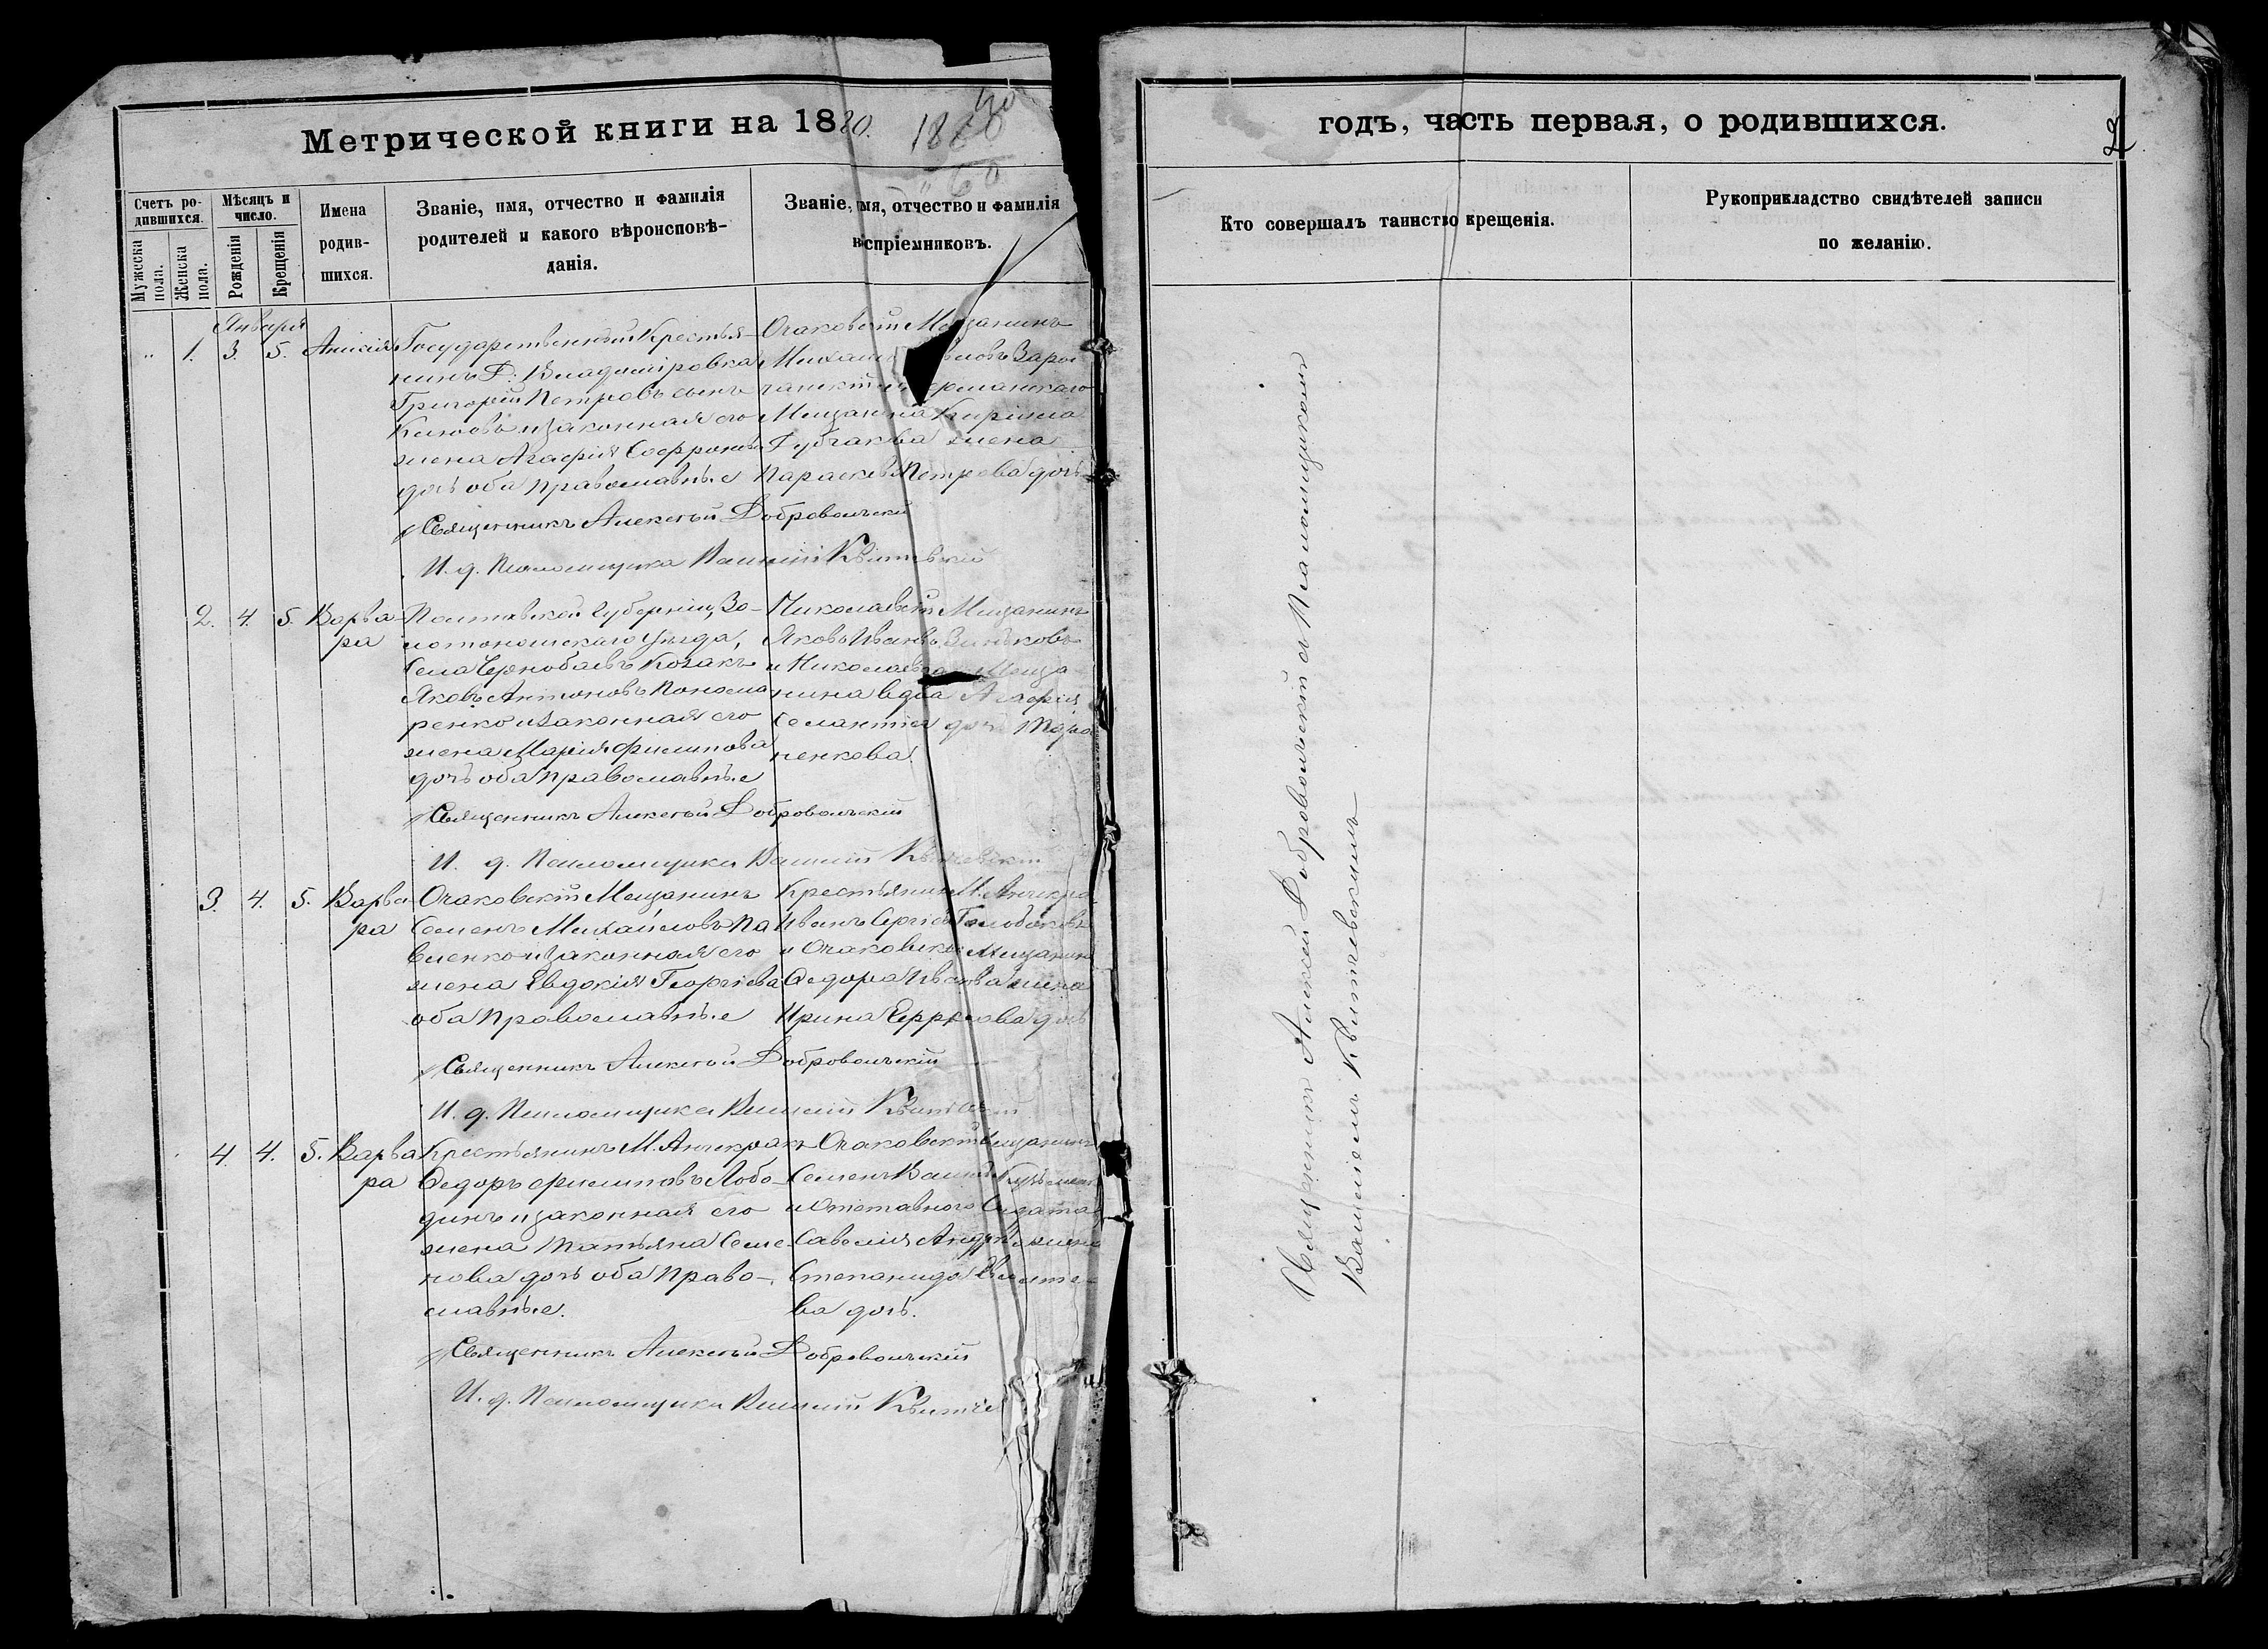 Метрической книги на 1880.
1880
годъ, часть первая, о родившихся.
2
Счетъ ро-
дившихся.
Мужеска
пола.
Женска
пола.
Мѣсяцъ и
число.
Рожденія
Крещенія
Имена
родив-
шихся.
Званіе, имя, отчество и фамилія
родителей и какого вѣроисповѣ-
данія.
Званіе, имя, отчество и фамилія
воспріемниковъ.
Кто совершалъ таинство крещенія.
Рукоприкладство свидѣтелей записи
по желанію.
Января
„ 1. 3. 5. Анисія
Государственный Крестья-
нинъ Д: Владиміровка
Григорій Петровъ сынъ
и законная его
жена Агафія Софронова
дочь оба православные
Очаковскій Мещанинъ
Михаилъ
Мещанина Кирилла
жена
Параскева Петрова дочь
Священникъ Алексѣй Добровольскій
И. д. Псаломщика Василій Квитчевскій
2. 4. 5. Варва-
ра
Полтавской Губерніи, Зо-
лотоношскаго уѣзда,
Села Чернобаевъ Козакъ
Яковъ Антоновъ Понома-
ренко и законная его
жена Марія Филипова
дочь оба православные
Николаевскій Мещанинъ
Яковъ Ивановъ Зиньковъ
и Николаевска Меща-
нина вдова Агафія
дочь
ненкова.
Священникъ Алексѣй Добровольскій
И. д. Псаломщика Василій Квитчевскій
3. 4. 5. Варва-
ра
Очаковскій Мещанинъ
Семенъ Михайловъ Па-
вленко и законная его
жена Евдокія Георгіева
оба православные
Крестьянинъ М. Анчекрак
Иванъ Сергіевъ
и Очаковска Мещанина
Федора Иванова жена
Ирина дочь
Священникъ Алексѣй Добровольскій
И. д. Псаломщика Василій Квитчевскій
4. 4. 5. Варва
ра
Крестьянинъ М. Анчекракъ
Федоръ Филиповъ Лобо-
динъ и законная его
жена Татьяна Семе-
нова дочь оба право-
славные.
Очаковскій Мещанинъ
Семенъ
и Отставного Солдата
Савелія жена
Степанида
ва дочь.
Священникъ Алексѣй Добровольскій
И. д. Псаломщика Василій Квитче
Священникъ Алексѣй Добровольскій съ Псаломщикомъ
Василіемъ Квитчевскимъ